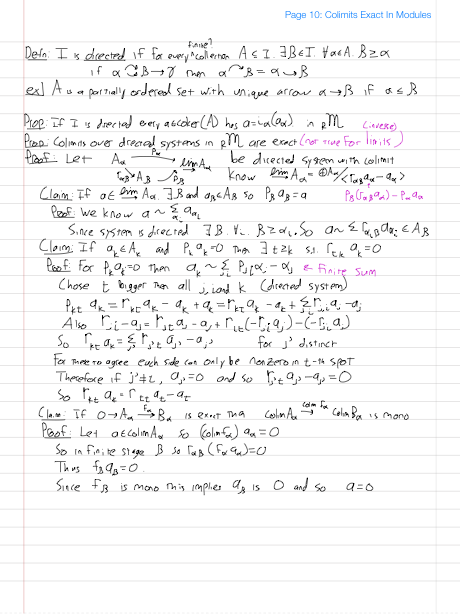 Page 10: Colimits Exact In Modules
finite?
Defn: I is directed if for every ^ collection A ≤ I. ∃B∈I. ∀α∈A. B≥α
if α ⇉ B→γ then α ↷ B = α → B
ex] A is a partially ordered set with unique arrow α→B if α ≤ B
Prop: If I is directed every a∈coker(A) has a=ια(aα) in RM (inverse)
Prop: Colimits over directed systems in RM are exact (not true for limits)
Proof: Let Aα →Pα lim Aα be directed system with colimit
ΓαB ↘ AB ↗ PB know lim Aα = ⊕Aα/<ΓαB aα - aα>
Claim: If a∈ lim Aα ∃B and aB∈AB so PB aB = a PB(ΓαB aα) - Pα aα
Proof: We know a ~ Σ aαi
Since system is directed ∃B. ∀i. B≥αi. So a ~ Σ ΓαiB aαi ∈ AB
Claim: If ak∈Ak and Pk ak=0 then ∃t≥k s.t. Γtk ak=0
Proof: For Pk ak=0 then ak ~ Σ Γji αj - αj ← Finite sum
Chose t bigger than all j, i and k (directed system)
Γkt ak = Γkt ak - ak + ak = Γkt ak - ak + Σ Γji aj - aj
Also Γji - aj = Γjt aj - aj + Γit(-Γji aj) - (-Γji aj)
So Γkt ak = Σ Γj't aj' - aj' for j' distinct
For these to agree each side can only be nonzero in t-th spot
Therefore if j'≠t, aj'=0 and so Γj't aj' - aj' = 0
So Γkt ak = Γtt at - at
Claim: If 0→Aα →fα Bα is exact then colim Aα →colim fα colim Bα is mono
Proof: Let a∈colim Aα so (colim fα) aα = 0
So in finite stage B so ΓαB (fα aα)=0
Thus fB aB = 0.
Since fB is mono this implies aB is 0 and so a=0